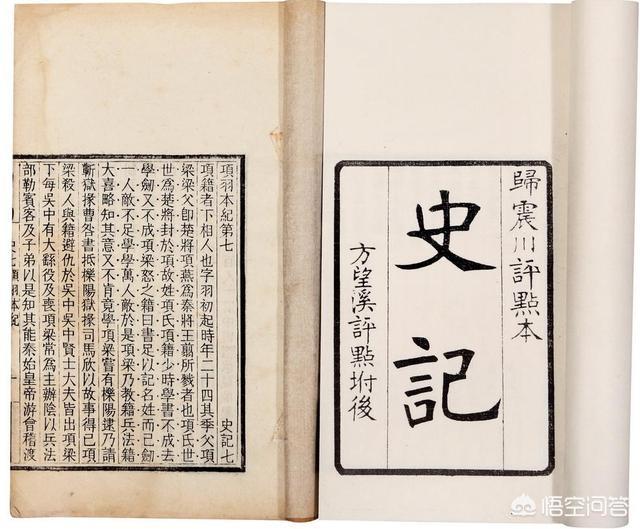 歸震川評點本
史記
方望溪評點坿後
項羽本紀第七 史記七
項籍者下相人也字羽初起時年二十四其季父項
梁梁父卽楚將項燕爲秦將王翦所戮者也項氏世
世爲楚將封於項故姓項氏項籍少時學書不成去
學劍又不成項梁怒之籍曰書足以記名姓而已劍
一人敵不足學學萬人敵於是項梁乃教籍兵法籍
大喜略知其意又不肯竟學項梁嘗有櫟陽逮乃請
蘄獄掾曹咎書抵櫟陽獄掾司馬欣以故事得已項
梁殺人與籍避仇於吳中吳中賢士大夫皆出項梁
下每吳中有大繇役及喪項梁常爲主辦陰以兵法
部勒賓客及子弟以是知其能秦始皇帝游會稽渡
項羽本紀
悟空问答